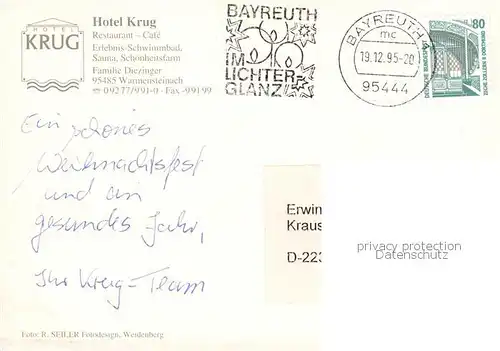 Hotel Krug
HOTEL
KRUG
Restaurant – Café
Erlebnis-Schwimmbad,
Sauna, Schönheitsfarm
Familie Diezinger
95485 Warmensteinach
☎ 09277/991-0 · Fax -99199
BAYREUTH
IM
LICHTER
GLANZ
BAYREUTH 4
mc
19.12.95-20
95444
80
DEUTSCHE BUNDESPOST
ZECHE ZOLLERN II DORTMUND
Ein schönes
Weihnachtsfest
und ein
gesundes Jahr,
Ihr Krug-Team
Erwin
Kraus
D-223
privacy protection
Datenschutz
Foto: R. SEILER Fotodesign, Weidenberg